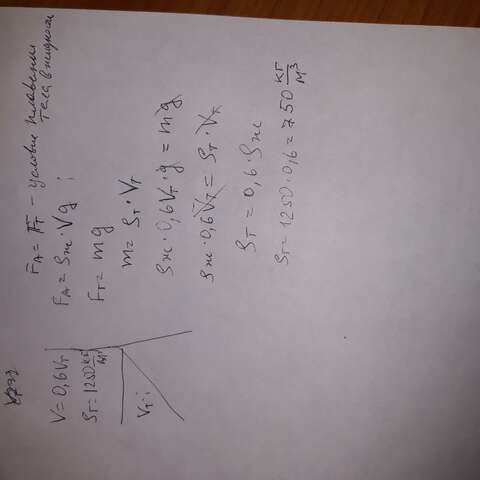 V = 0,6 Vт
ρт = 1250 кг/м³
Vт - ?
Fₐ = Fт - условие плавания
тела в жидкости
Fₐ = ρж · Vg ;
Fт = mg
m = ρт · Vт
ρж · 0,6 Vт · g = mg
ρж · 0,6 Vт = ρт · Vт
ρт = 0,6 · ρж
ρт = 1250 · 0,6 = 750 кг/м³